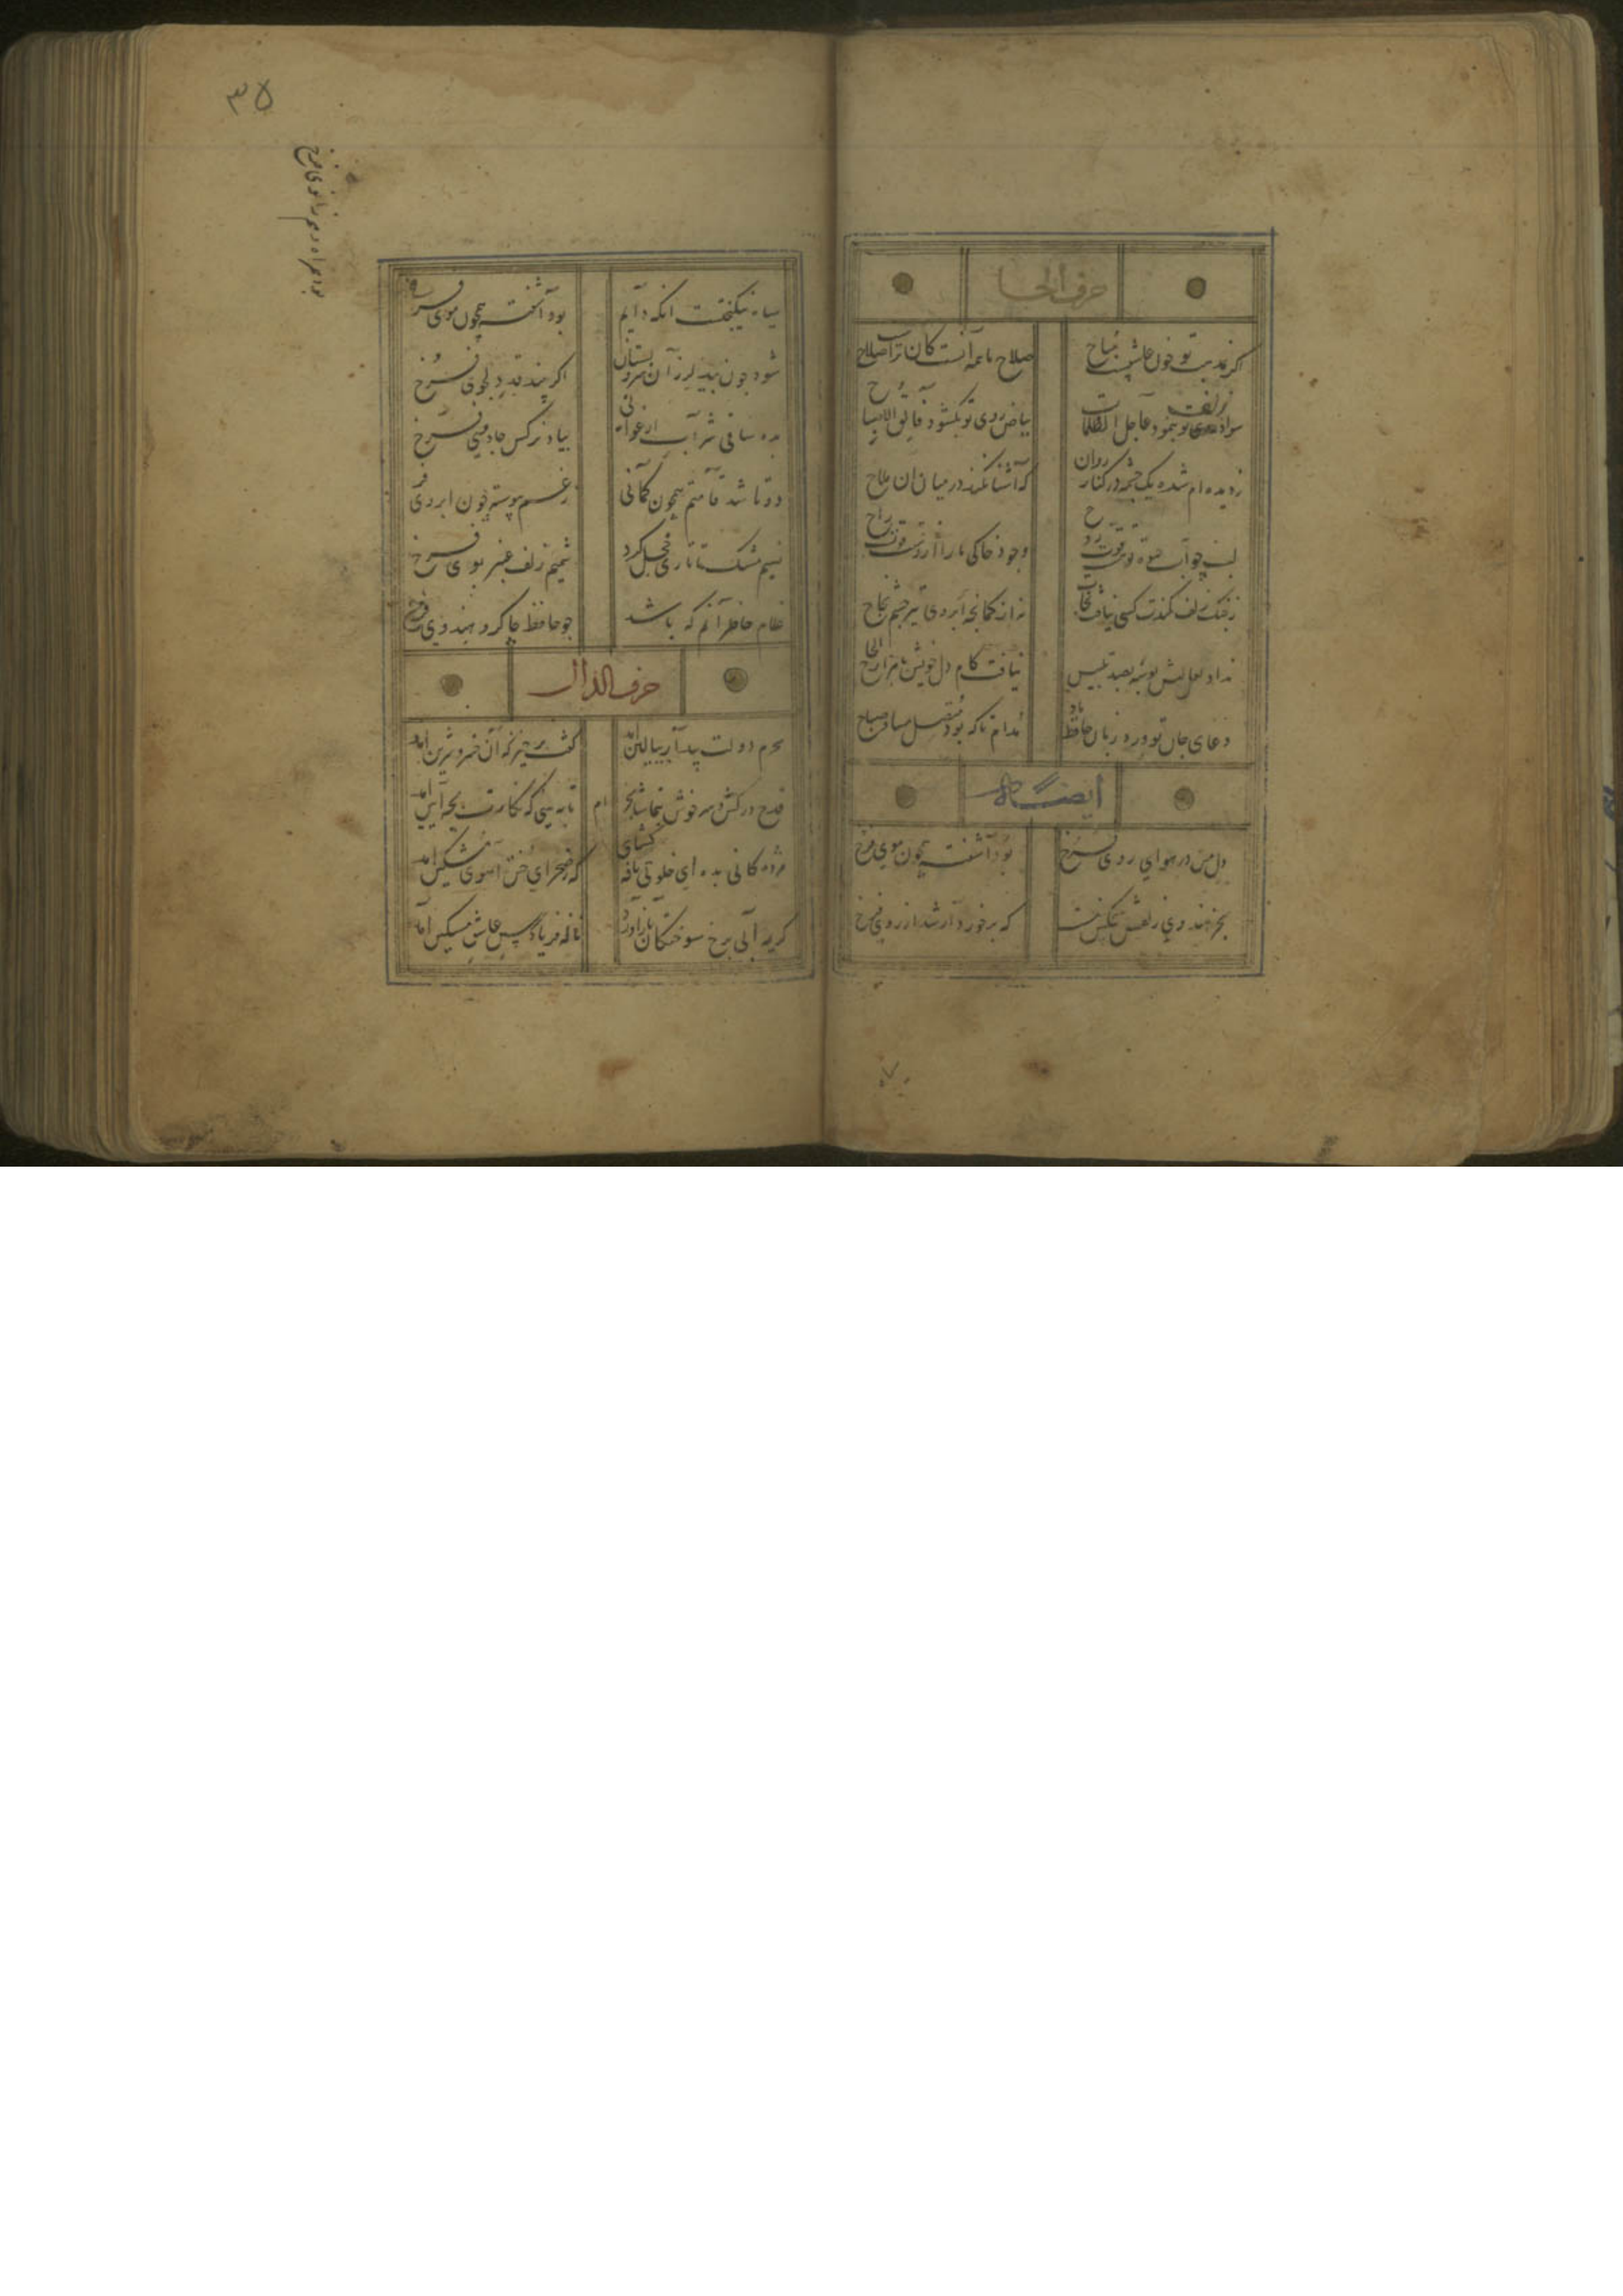 حرف الحا
اکر بمذهب تو خون عاشقست مباح
صلاح ما همه آنست کان تراست صلاح
سواد زلف تو بنمود جاعل الظلمات
بیاض روی تو بکشود فالق الاصباح
ز دیده ام شده یک چشمه در کنار روان
که آشنا نکند در میان آن ملاح
لب چو آب حیوة تو هست قوت روح
وجود خاکی ما را ازوست قوت راح
ز چنک زلف کمندت کسی نیافت نجات
نه از کمانچه ابروی تیر چشم نجاح
نداد لعل لبش بوسه بصد تلبیس
نیافت کام دل خویش با هزار الحاح
دعای جان تو ورد زبان حافظ باد
مدام تا که بود متصل مسا و صباح
ایضا له
دل من در هوای روی فرخ
بود آشفته همچون موی فرخ
بجز هندوی زلفش هیچکس نیست
که برخوردار شد از روی فرخ
۳۵
سیاه نیکبختست آنکه دایم
بود آشفته همچون موی فرخ
شود چون بید لرزان سرو بستان
اکر بیند قد دلجوی فرخ
بده ساقی شراب ارغوانی
بیاد نرکس جادوی فرخ
دوتا شد قامتم همچون کمانی
ز غم پیوسته چون ابروی فرخ
نسیم مشک تاتاری خجل کرد
شمیم زلف عنبر بوی فرخ
غلام خاطر آنم که باشد
چو حافظ چاکر و هندوی فرخ
حرف الدال
سحرم دولت بیدار ببالین آمد
کفت برخیز که آن خسرو شیرین آمد
قدح درکش و سرخوش بتماشا بخرام
تا به بینی که نکارت بچه آیین آمد
مژدکانی بده ای خلوتی نافه کشای
که ز صحرای ختن آهوی مشکین آمد
کریه آبی برخ سوختکان باز آورد
ناله فریادرس عاشق مسکین آمد